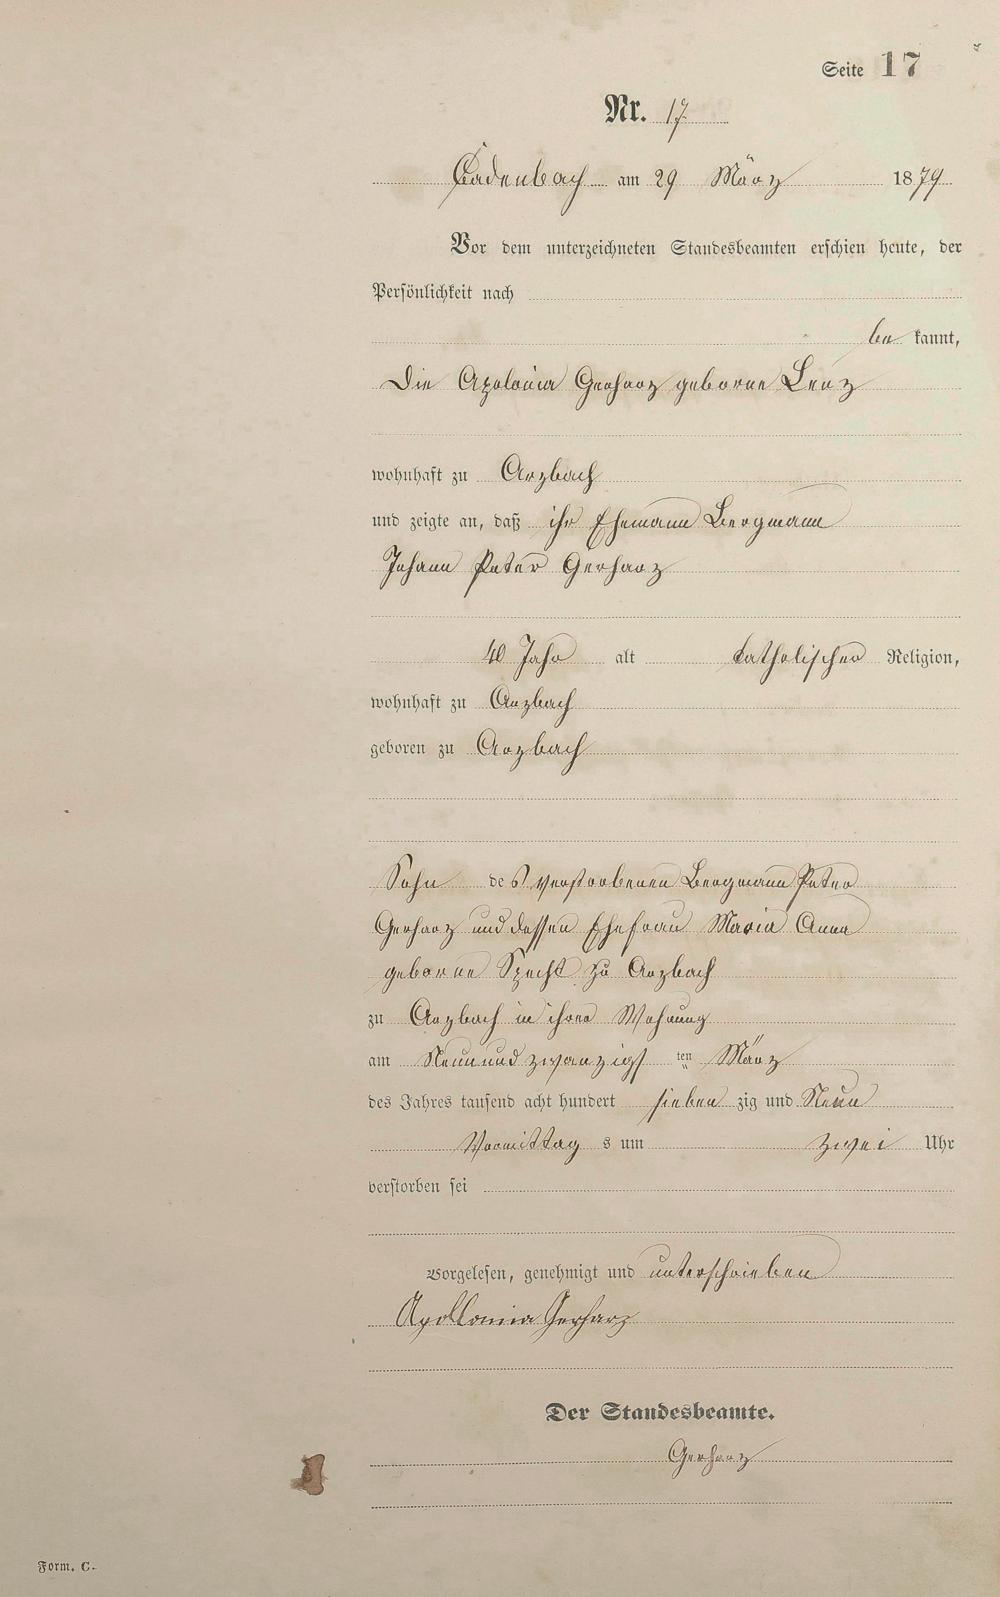 Seite 17
Nr. 17
Cadenbach am 29 März 1879
Vor dem unterzeichneten Standesbeamten erschien heute, der
Persönlichkeit nach
be kannt,
Die Apolonia Gerharz geborne Lenz
wohnhaft zu Arzbach
und zeigte an, daß ihr Ehemann Bergmann
Johann Peter Gerharz
40 Jahr alt katholischer Religion,
wohnhaft zu Arzbach
geboren zu Arzbach
Sohn des verstorbenen Bergmann Peter
Gerharz und dessen Ehefrau Maria Anna
geborne Specht zu Arzbach
zu Arzbach in ihrer Wohnung
am Neunundzwanzigs ten März
des Jahres tausend acht hundert sieben zig und Neun
Vormittag s um zwei Uhr
verstorben sei
Vorgelesen, genehmigt und unterschrieben
Apollonia Gerharz
Der Standesbeamte.
Gerharz
Form. C.